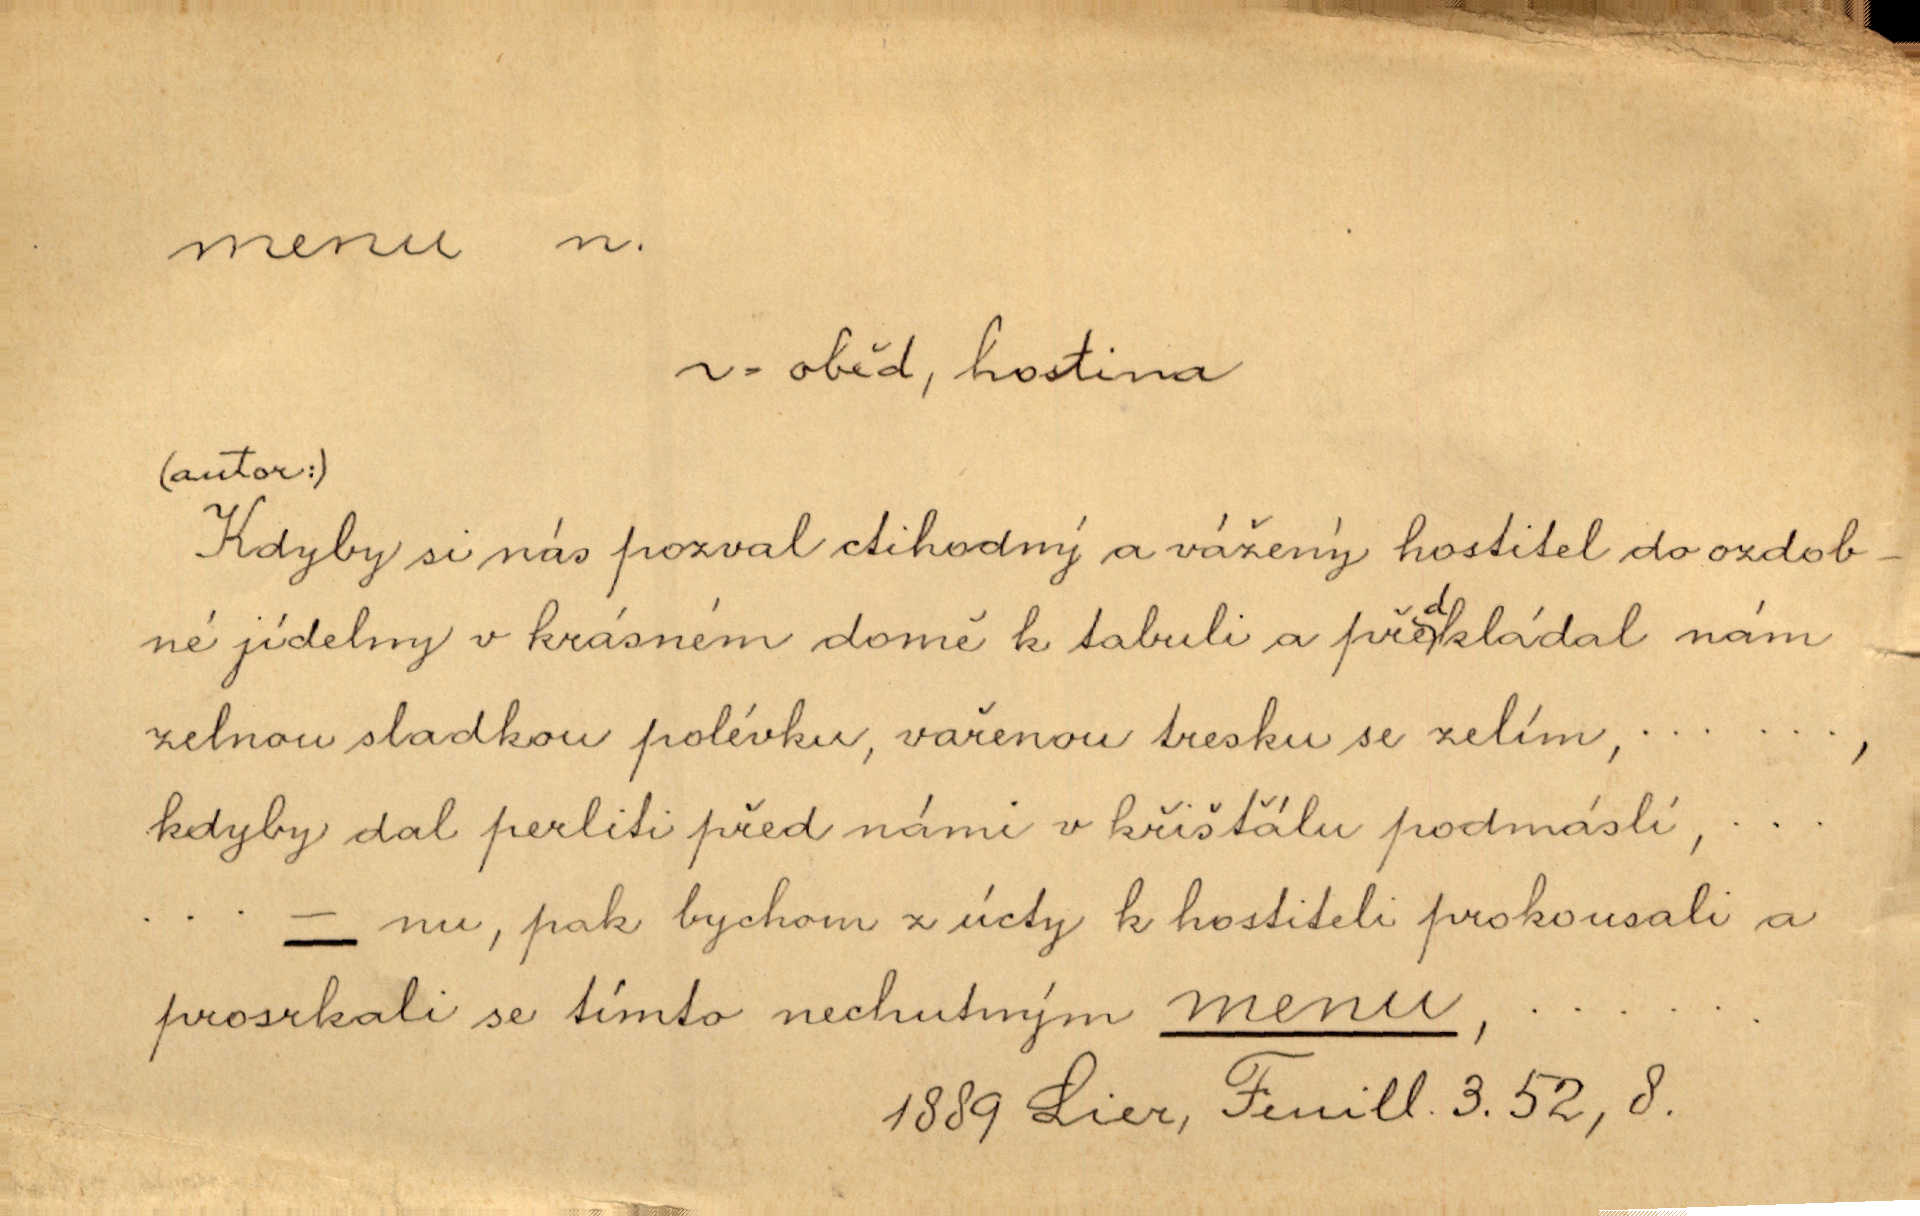 menu n.
v= oběd, hostina
(autor:)
Kdyby si nás pozval ctihodný a vážený hostitel do ozdob-
né jídelny v krásném domě k tabuli a předkládal nám
zelnou sladkou polévku, vařenou tresku se zelím, . . . . . . ,
kdyby dal perliti před námi v křišťálu podmáslí, . . .
. . . — nu, pak bychom z úcty k hostiteli prokousali a
prosrkali se tímto nechutným menu, . . . . . . .
1889 Lier, Feuill. 3. 52, 8.